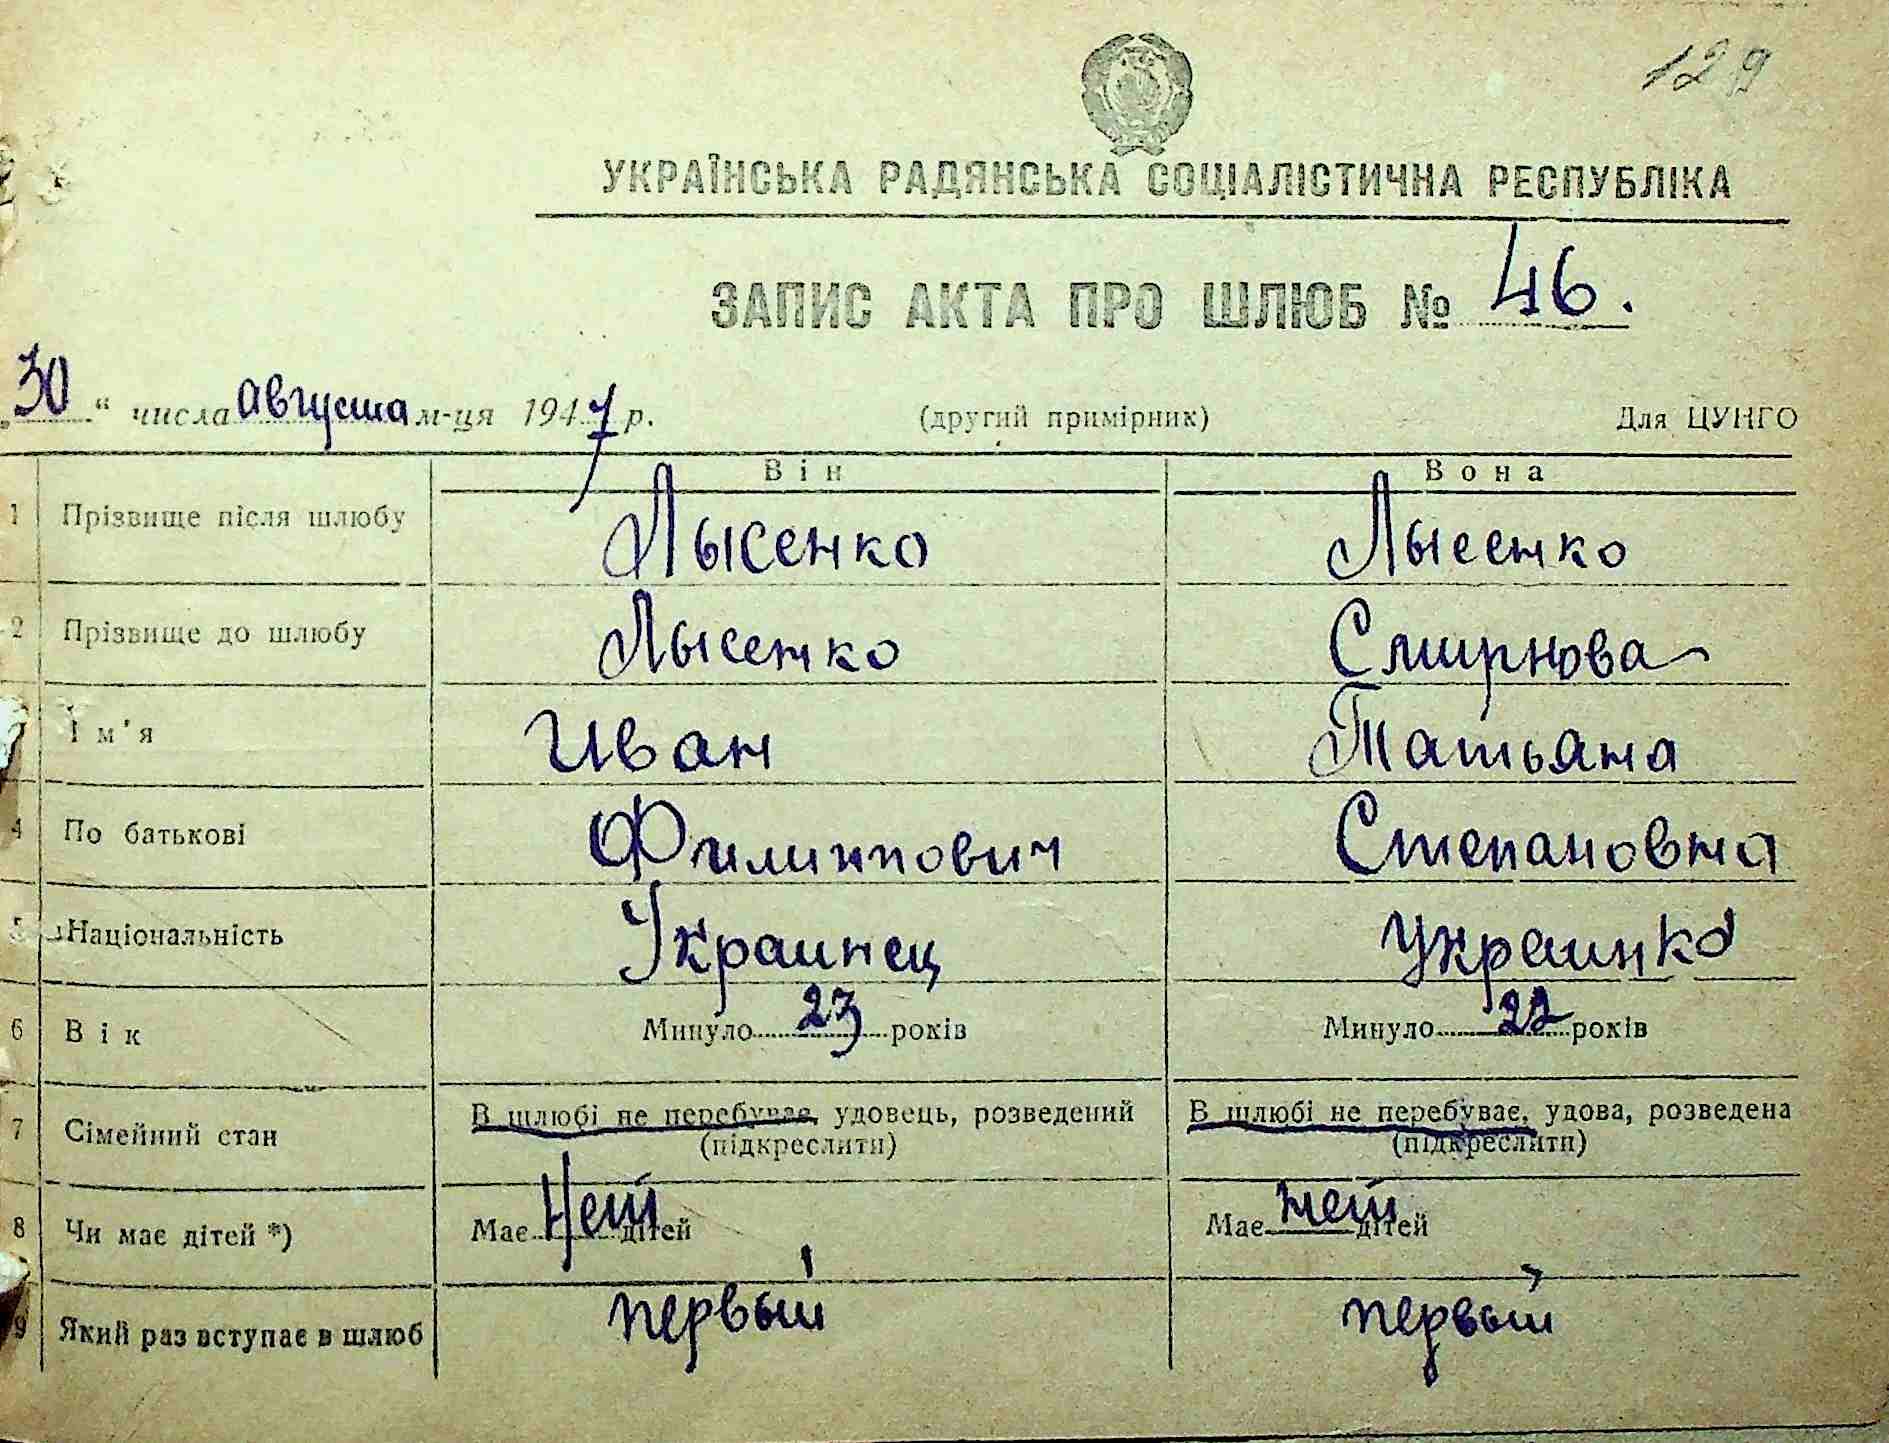 129
УКРАЇНСЬКА РАДЯНСЬКА СОЦІАЛІСТИЧНА РЕСПУБЛІКА
ЗАПИС АКТА ПРО ШЛЮБ № 46.
„30“ числа августа м-ця 1947 р. (другий примірник) Для ЦУНГО
Він Вона
1 Прізвище після шлюбу Лысенко Лысенко
2 Прізвище до шлюбу Лысенко Смирнова
Ім'я Иван Татьяна
4 По батькові Филиппович Степановна
5 Національність Украинец Украинка
6 Вік Минуло 23 років Минуло 22 років
7 Сімейний стан В шлюбі не перебуває, удовець, розведений В шлюбі не перебуває, удова, розведена
(підкреслити) (підкреслити)
8 Чи має дітей *) Має Нет дітей Має нет дітей
9 Який раз вступає в шлюб первый первый